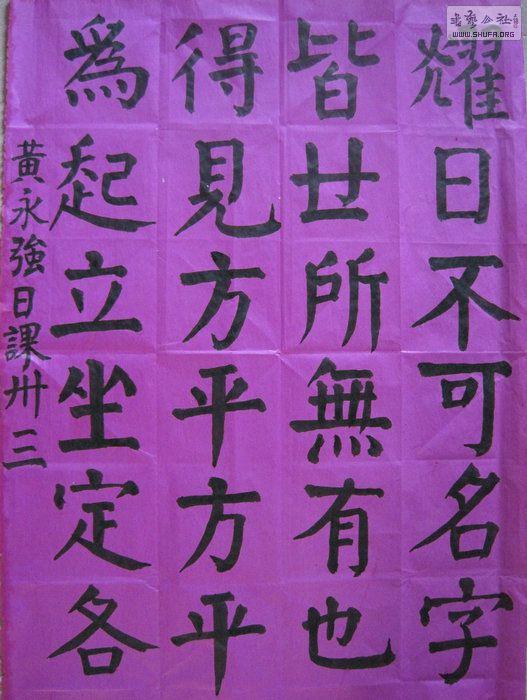 耀日不可名字
皆世所無有也
得見方平方平
為起立坐定各
黃永強日課卅三
書藝公社
WWW.SHUFA.ORG